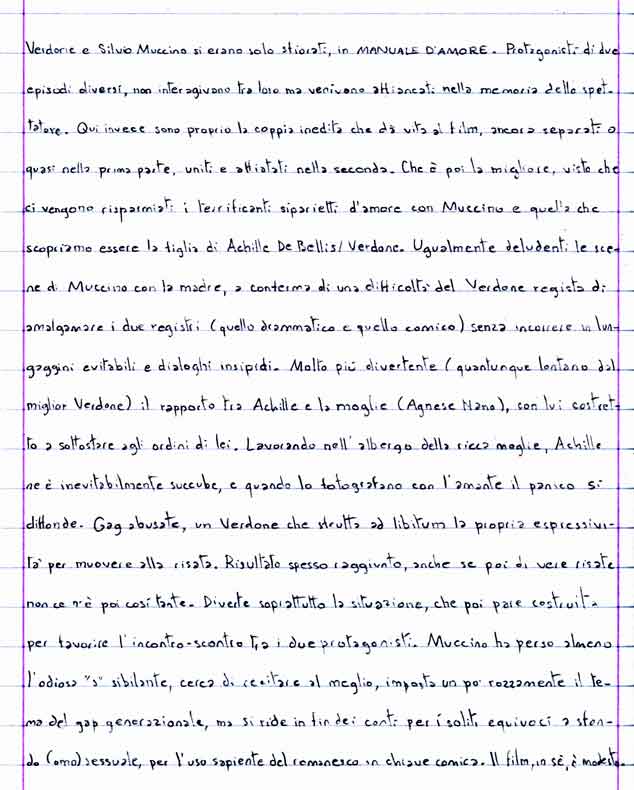 Verdone e Silvio Muccino si erano solo sfiorati, in MANUALE D'AMORE. Protagonisti di due
episodi diversi, non interagivano tra loro ma venivano affiancati nella memoria dello spet-
tatore. Qui invece sono proprio la coppia inedita che dà vita al film, ancora separati o
quasi nella prima parte, uniti e affiatati nella seconda. Che è poi la migliore, visto che
ci vengono risparmiati i terrificanti siparietti d'amore con Muccino e quella che
scopriamo essere la figlia di Achille De Bellis/Verdone. Ugualmente deludenti le sce-
ne di Muccino con la madre, a conferma di una difficoltà del Verdone regista di
amalgamare i due registri (quello drammatico e quello comico) senza incorrere in lun-
gaggini evitabili e dialoghi insipidi. Molto più divertente (quantunque lontano dal
miglior Verdone) il rapporto tra Achille e la moglie (Agnese Nano), con lui costret-
to a sottostare agli ordini di lei. Lavorando nell'albergo della ricca moglie, Achille
ne è inevitabilmente succube, e quando lo fotografano con l'amante il panico si
diffonde. Gag abusate, un Verdone che sfrutta ad libitum la propria espressivi-
tà per muovere alla risata. Risultato spesso raggiunto, anche se poi di vere risate
non ce n'è poi così tante. Diverte soprattutto la situazione, che poi pare costruita
per favorire l'incontro-scontro tra i due protagonisti. Muccino ha perso almeno
l'odiosa "s" sibilante, cerca di recitare al meglio, imposta un po' rozzamente il te-
ma del gap generazionale, ma si ride in fin dei conti per i soliti equivoci a sfon-
do (omo)sessuale, per l'uso sapiente del romanesco in chiave comica. Il film, in sé, è modesto.